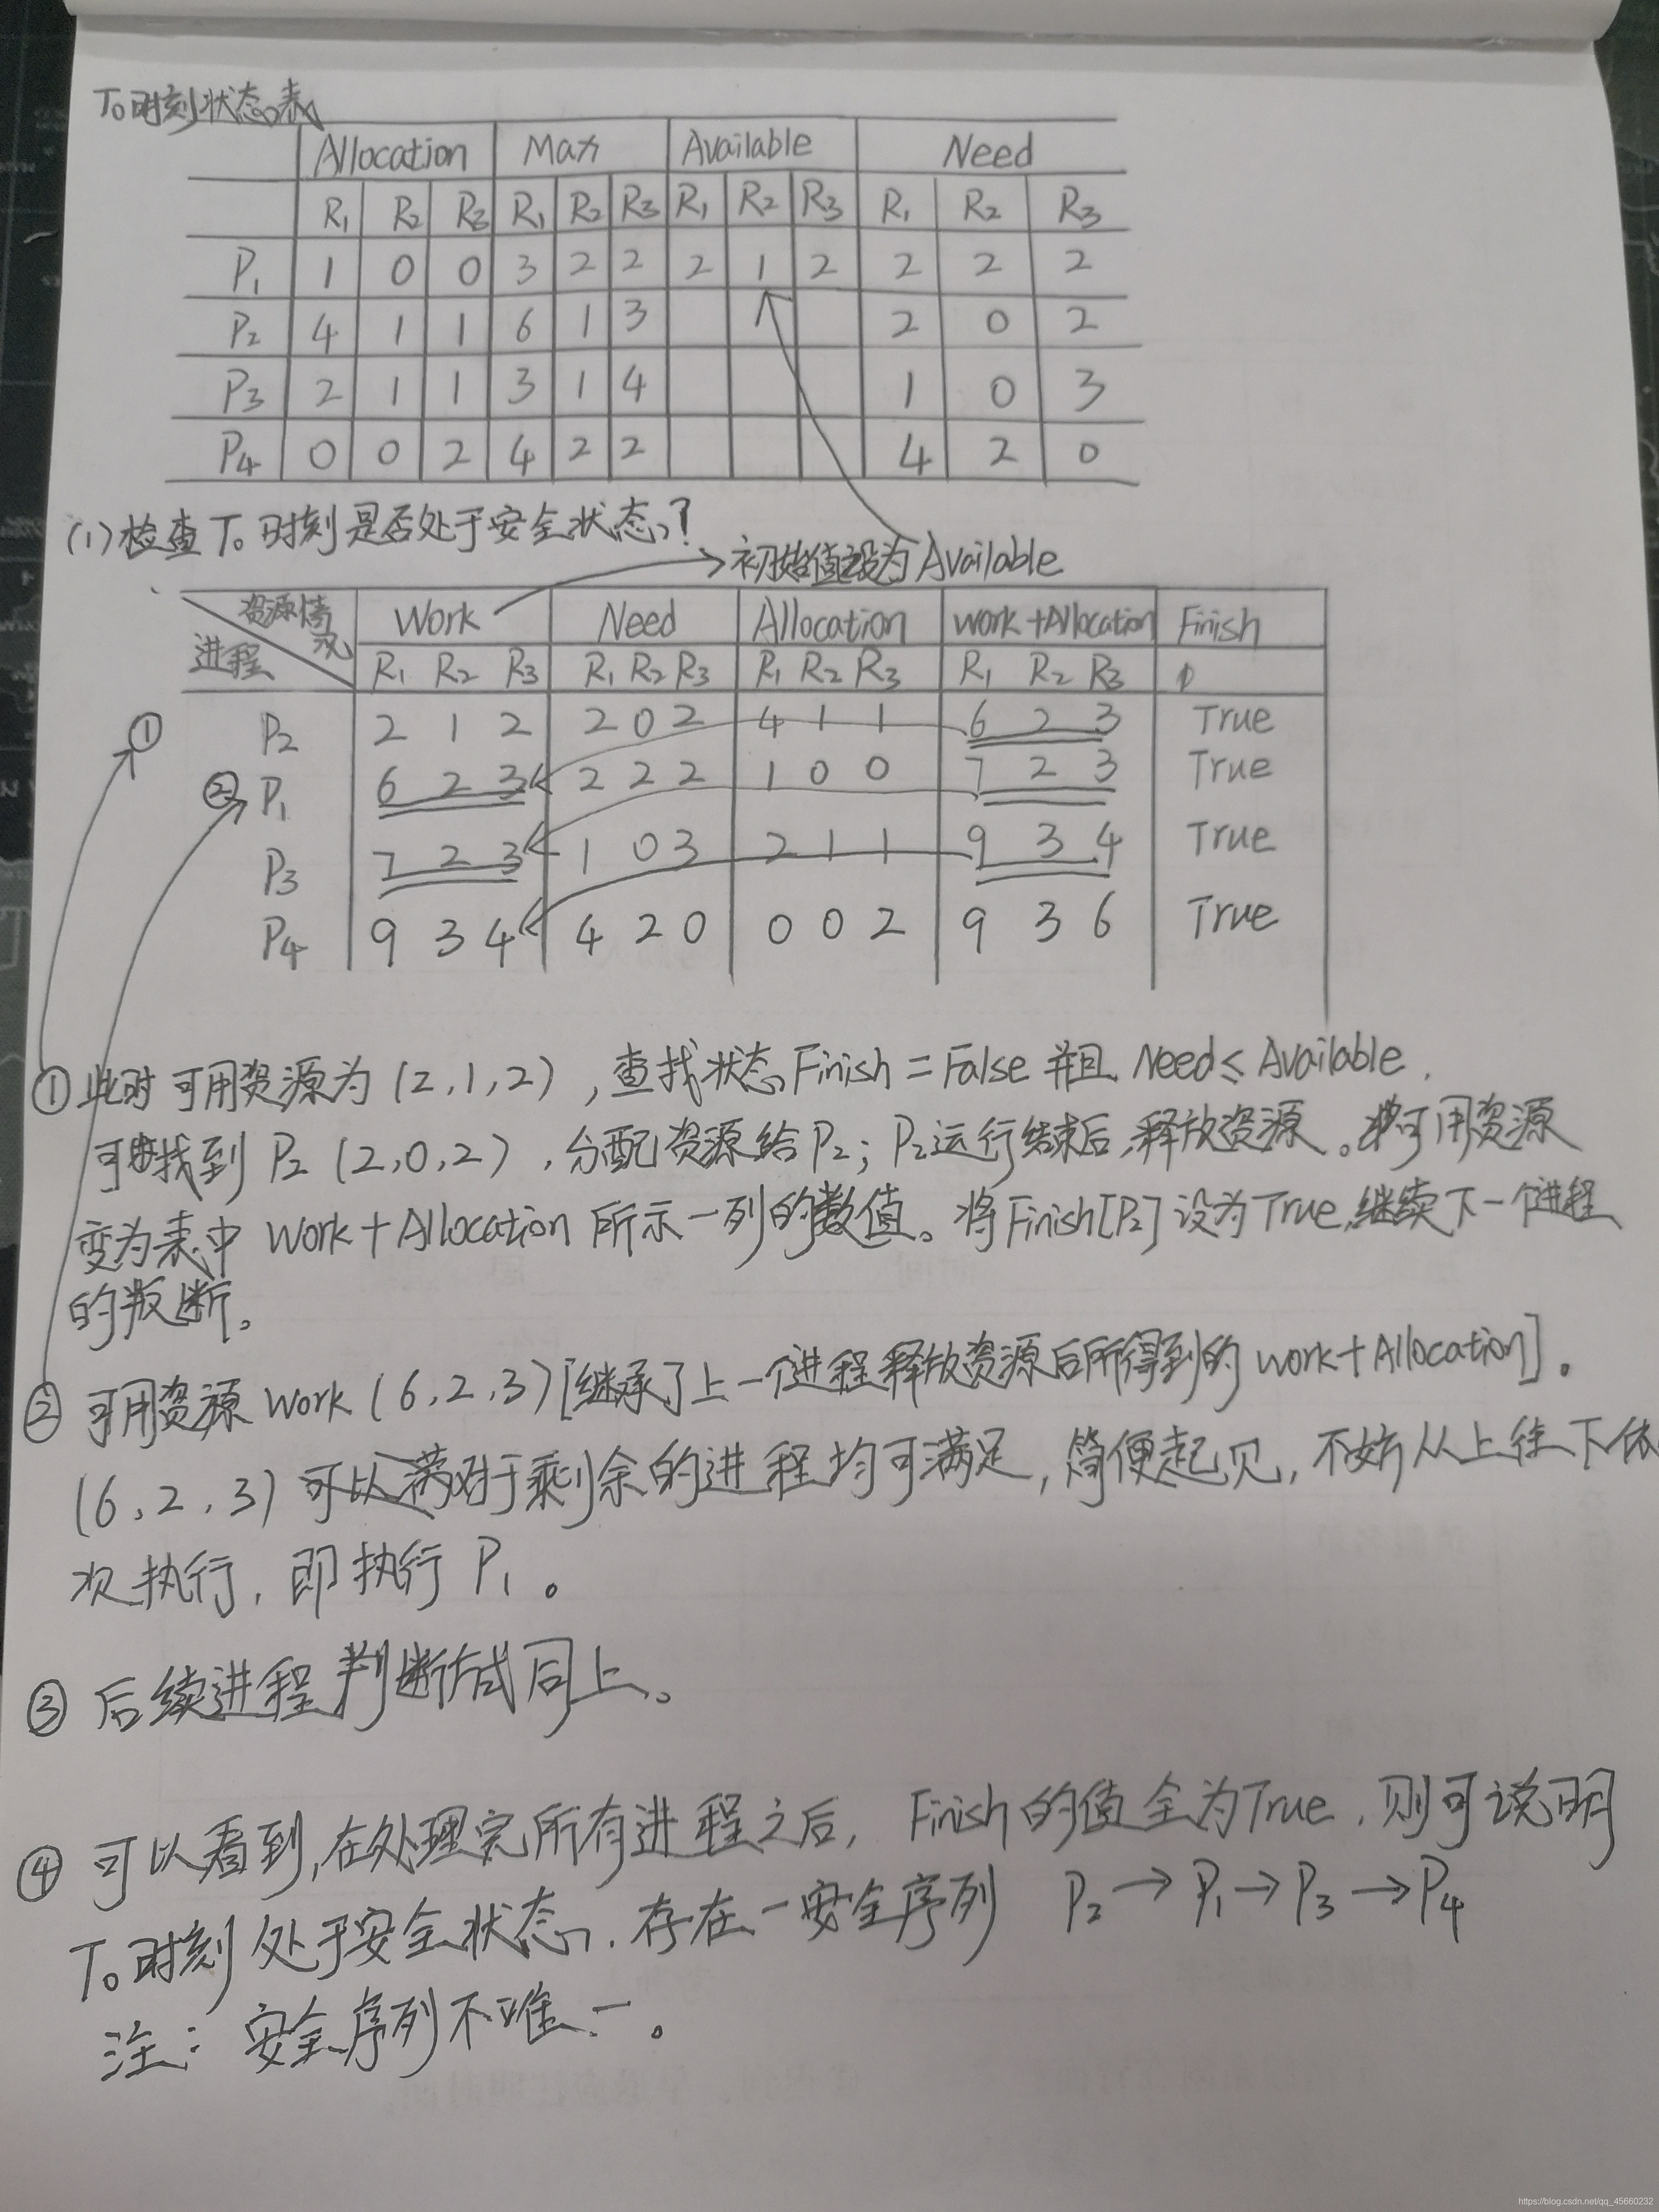 T₀时刻状态表
Allocation Max Available Need
R₁ R₂ R₃ R₁ R₂ R₃ R₁ R₂ R₃ R₁ R₂ R₃
P₁ 1 0 0 3 2 2 2 1 2 2 2 2
P₂ 4 1 1 6 1 3 2 0 2
P₃ 2 1 1 3 1 4 1 0 3
P₄ 0 0 2 4 2 2 4 2 0
(1)检查T₀时刻是否处于安全状态?
初始值设为Available
资源情况 Work Need Allocation work+Allocation Finish
进程 R₁ R₂ R₃ R₁ R₂ R₃ R₁ R₂ R₃ R₁ R₂ R₃
① P₂ 2 1 2 2 0 2 4 1 1 6 2 3 True
② P₁ 6 2 3 2 2 2 1 0 0 7 2 3 True
P₃ 7 2 3 1 0 3 2 1 1 9 3 4 True
P₄ 9 3 4 4 2 0 0 0 2 9 3 6 True
① 此时可用资源为(2,1,2),查找状态Finish=False并且Need≤Available.
可找到P₂(2,0,2),分配资源给P₂;P₂运行结束后,释放资源。可用资源
变为表中Work+Allocation所示一列的数值。将Finish[P₂]设为True,继续下一个进程
的叛断。
② 可用资源Work(6,2,3)[继承了上一个进程释放资源后所得到的work+Allocation]。
(6,2,3)可以对于剩余的进程均可满足,简便起见,不妨从上往下依
次执行,即执行P₁。
③ 后续进程判断方式同上。
④ 可以看到,在处理完所有进程之后,Finish的值全为True,则可说明
T₀时刻处于安全状态,存在一安全序列 P₂→P₁→P₃→P₄
注:安全序列不唯一。
https://blog.csdn.net/qq_45660232